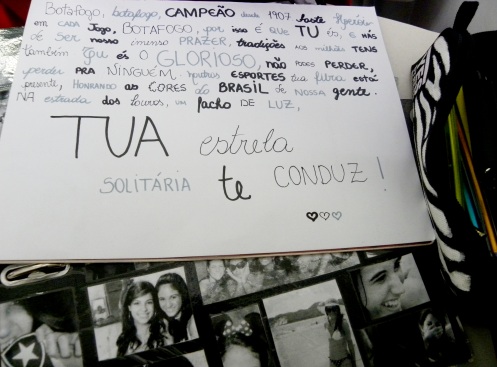 Botafogo, botafogo, CAMPEÃO desde 1907 foste Herói
em CADA Jogo, BOTAFOGO, por isso É que TU és, E HÁS
de Ser nosso imenso PRAZER, tradições aos milhões TENS
também tu és O GLORIOSO, NÃO PODES PERDER,
perder PRA NINGUÉM noutros ESPORTES tua fibra está
presente, HONRANDO as CORES do BRASIL de NOSSA gente.
NA estrada dos louros, um facho DE LUZ,
TUA estrela
SOLITÁRIA te CONDUZ!